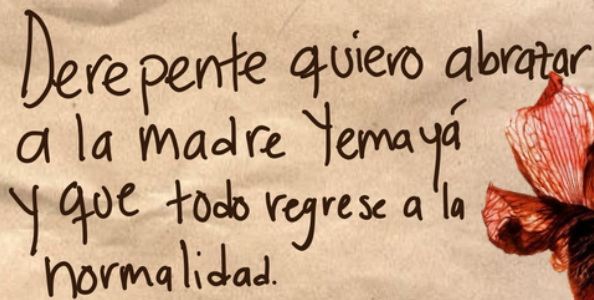 Derepente quiero abrazar
a la madre Yemayá
y que todo regrese a la
normalidad.